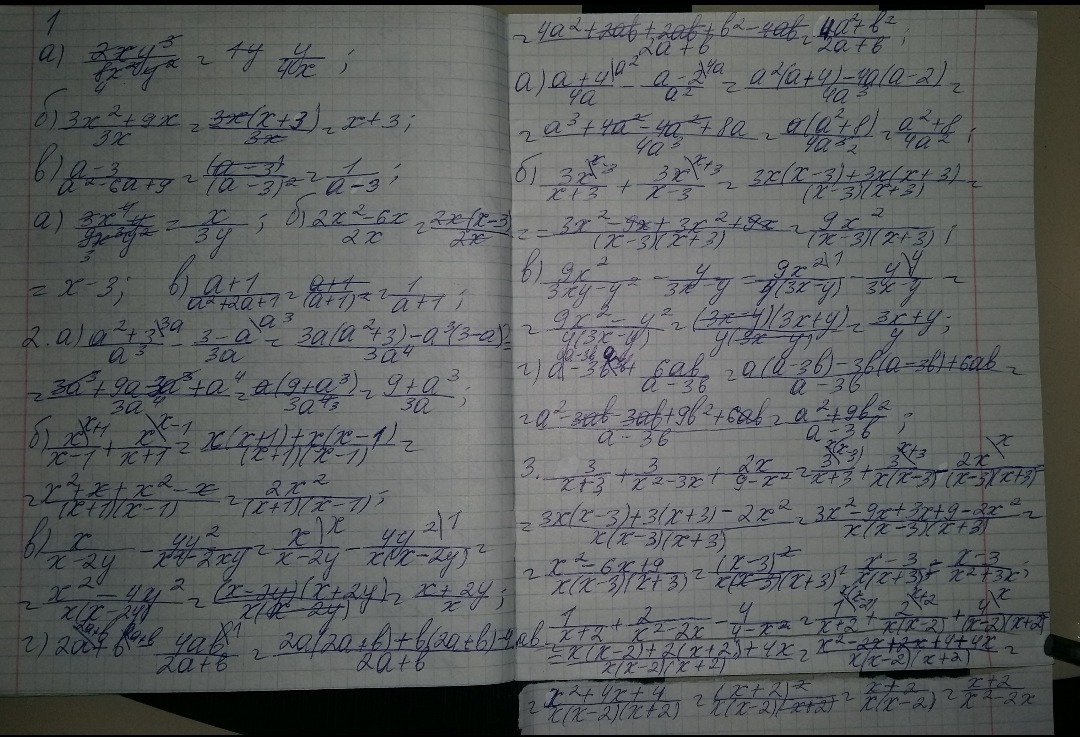 1
а) 2xy³/8x²y² = 4y y/4x ;
б) 3x²+9x/3x = 3x(x+3)/3x = x+3;
в) a-3/a²-6a+9 = (a-3)/(a-3)² = 1/a-3 ;
а) 3x⁴y/9x³y² = x/3y ; б) 2x²-6x/2x = 2x(x-3)/2x
= x-3; в) a+1/a²+2a+1 = a+1/(a+1)² = 1/a+1 ;
2. а) a²+3\3a/a³ - 3-a\a³/3a = 3a(a²+3)-a³(3-a)/3a⁴ =
= 3a³+9a-3a³+a⁴/3a⁴ = a(9+a³)/3a⁴3 = 9+a³/3a ;
б) x\x+1/x-1 + x\x-1/x+1 = x(x+1)+x(x-1)/(x+1)(x-1) =
= x²+x+x²-x/(x+1)(x-1) = 2x²/(x+1)(x-1) ;
в) x/x-2y - 4y²/x²-2xy = x\x/x-2y - 4y²\1/x(x-2y) =
= x²-4y²/x(x-2y) = (x-2y)(x+2y)/x(x-2y) = x+2y/x ;
г) 2a\2a+b + b\2a+b - 4ab\1/2a+b = 2a(2a+b)+b(2a+b)-4ab/2a+b =
= 4a²+2ab+2ab+b²-4ab/2a+b = 4a²+b²/2a+b ;
а) a+4\a²/4a - a-2\4a/a² = a²(a+4)-4a(a-2)/4a³ =
= a³+4a²-4a²+8a/4a³ = a(a²+8)/4a³2 = a²+8/4a² ;
б) 3x\x-3/x+3 + 3x\x+3/x-3 = 3x(x-3)+3x(x+3)/(x-3)(x+3) =
= = 3x²-9x+3x²+9x/(x-3)(x+3) = 9x²/(x-3)(x+3) ;
в) 9x²/3xy-y² - y/3x-y = 9x²\1/y(3x-y) - y\y/3x-y =
= 9x²-y²/y(3x-y) = (3x-y)(3x+y)/y(3x-y) = 3x+y/y ;
г) a\a-3b - 3b\a-3b + 6ab/a-3b = a(a-3b)-3b(a-3b)+6ab/a-3b =
= a²-3ab-3ab+9b²+6ab/a-3b = a²+9b²/a-3b ;
3. 3/x+3 + 3/x²-3x + 2x/9-x² = 3\x(x-3)/x+3 + 3\x+3/x(x-3) - 2x\x/(x-3)(x+3) =
= 3x(x-3)+3(x+3)-2x²/x(x-3)(x+3) = 3x²-9x+3x+9-2x²/x(x-3)(x+3) =
= x²-6x+9/x(x-3)(x+3) = (x-3)²/x(x-3)(x+3) = x-3/x(x+3) = x-3/x²+3x ;
1/x+2 + 2/x²-2x - 4/4-x² = 1\x(x-2)/x+2 + 2\x+2/x(x-2) + 4\x/(x-2)(x+2)
= x(x-2)+2(x+2)+4x/x(x-2)(x+2) = x²-2x+2x+4+4x/x(x-2)(x+2) =
= x²+4x+4/x(x-2)(x+2) = (x+2)²/x(x-2)(x+2) = x+2/x(x-2) = x+2/x²-2x